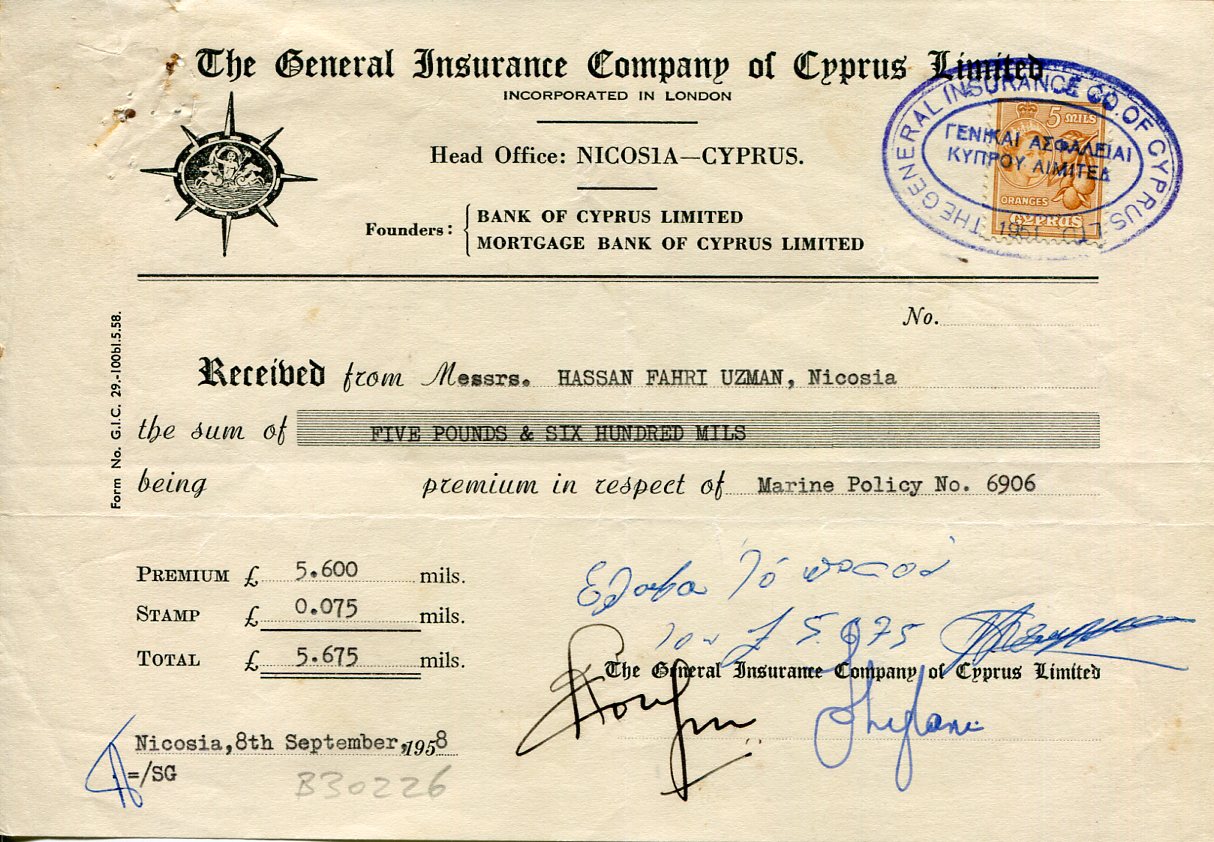 The General Insurance Company of Cyprus Limited
INCORPORATED IN LONDON
Head Office: NICOSIA—CYPRUS.
Founders: { BANK OF CYPRUS LIMITED
MORTGAGE BANK OF CYPRUS LIMITED
THE GENERAL INSURANCE CO. OF CYPRUS LTD
ΓΕΝΙΚΑΙ ΑΣΦΑΛΕΙΑΙ
ΚΥΠΡΟΥ ΛΙΜΙΤΕΔ
1951
5 MILS
ORANGES
CYPRUS
No.
Form No. G.I.C. 29.-100bl.5.58.
Received from Messrs. HASSAN FAHRI UZMAN, Nicosia
the sum of FIVE POUNDS & SIX HUNDRED MILS
being premium in respect of Marine Policy No. 6906
PREMIUM £ 5.600 mils.
STAMP £ 0.075 mils.
TOTAL £ 5.675 mils.
Ελαβα τό ποσόν
τον £ 5.675
The General Insurance Company of Cyprus Limited
Nicosia, 8th September, 1958
=/SG
B30226